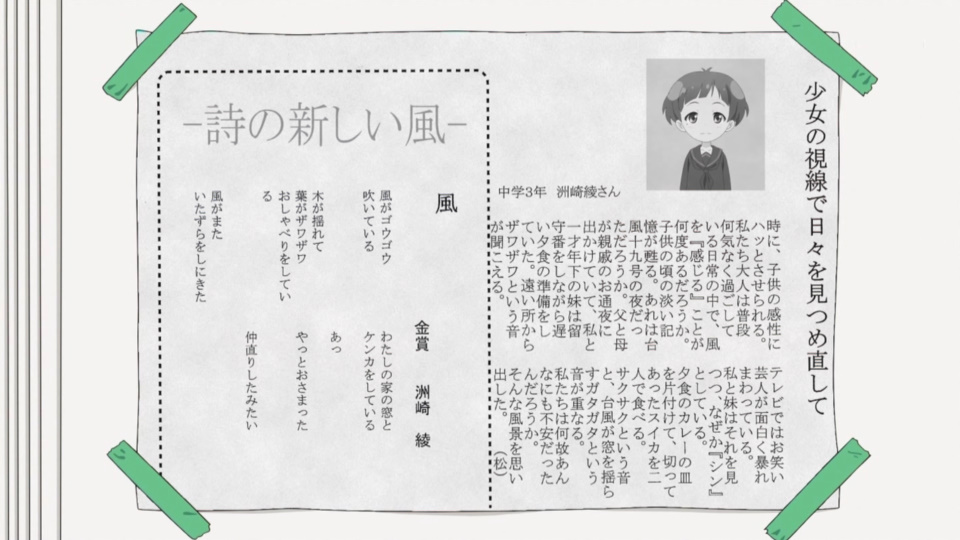 少女の視線で日々を見つめ直して
中学3年 洲崎綾さん
時に、子供の感性に
ハッとさせられる。
私たち大人は普段
何気なく過ごして
いる日常の中で、風
を『感じる』ことが
何度あるだろうか。
子供の頃の淡い記
憶が甦る。あれは台
風十九号の夜だっ
ただろうか。父と母
が親戚のお通夜に
出かけていて、私と
一才年下の妹は留
守番をしながら遅
い夕食の準備をし
ていた。遠い所から
ザワザワという音
が聞こえる。
テレビではお笑い
芸人が面白く暴れ
まわっている。
私と妹はそれを見
つつ、なぜか『シン』
としている。
夕食のカレーの皿
を片付けて、切って
あったスイカを二
人で食べる。
サクサクという音
と、台風が窓を揺ら
すガタガタという
音が重なる。
私たちは何故あん
なにも不安だった
んだろうか。
そんな風景を思い
出した。 (松)
−詩の新しい風−
風
金賞 洲崎 綾
風がゴウゴウ
吹いている
木が揺れて
葉がザワザワ
おしゃべりをしてい
る
風がまた
いたずらをしにきた
わたしの家の窓と
ケンカをしている
あっ
やっとおさまった
仲直りしたみたい